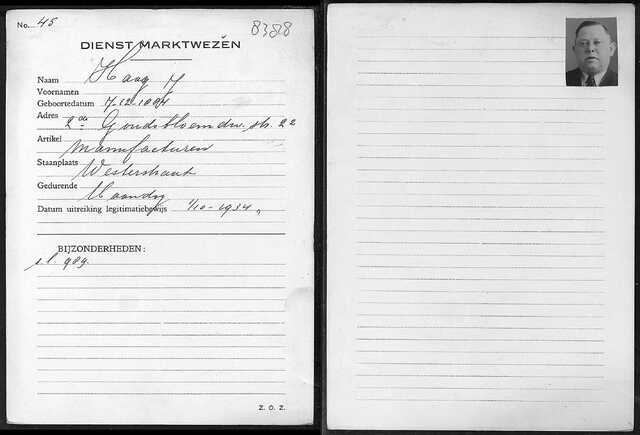 No. 45
8388
DIENST MARKTWEZEN
Naam Haag J
Voornamen
Geboortedatum 7-12-1884
Adres 2de Goudsbloemdw. str. 22
Artikel Manufacturen
Staanplaats Westerstraat
Gedurende Maandag
Datum uitreiking legitimatiebewijs 1/10-1934
BIJZONDERHEDEN:
s.l. 989.
Z. O. Z.